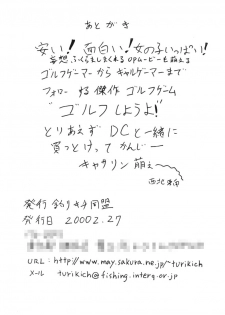 あとがき
安い!面白い!女の子いっぱい!
妄想ふくらましまくれるOPムービーも萌える
ゴルフゲーマーからギャルゲーマーまで
フォローする傑作ゴルフゲーム
"ゴルフしようよ"
とりあえずDCと一緒に
買っとけってかんじー
キャサリン萌ぇ〜
発行 釣りキチ同盟
発行日 20002.27
URL: http://www.may.sakura.ne.jp/~turikich
メール turikich@fishing.interq.or.jp